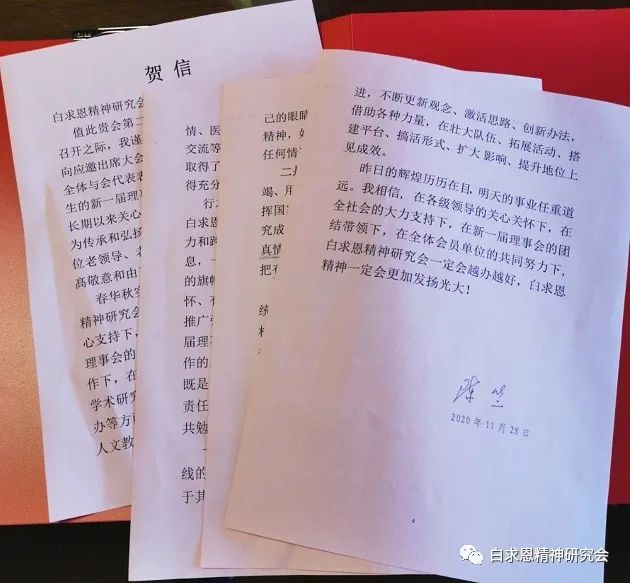 贺信
白求恩精神研究会
值此贵会第二
召开之际，我谨
向应邀出席大会
全体与会代表表
生的新一届理事
长期以来关心
为传承和弘扬
位老领导、老
高敬意和由
春华秋实
精神研究会
心支持下，
理事会的
作下，在
学术研究
办等方面
人文教
情、医
交流等
取得了
得充分
行
白求恩
力和
息，一
的旗帜
怀、
推广
届理事
作的
既是
责任
共勉
线的
于其
己的眼睛
精神，
任何情
二
竭、用
挥国
究成
真情
把
统
进，不断更新观念、激活思路、创新办法，
借助各种力量，在壮大队伍、拓展活动、搭
建平台、搞活形式、扩大影响、提升地位上
见成效。
昨日的辉煌历历在目，明天的事业任重道
远。我相信，在各级领导的关心关怀下，在
全社会的大力支持下，在新一届理事会的团
结带领下，在全体会员单位的共同努力下，
白求恩精神研究会一定会越办越好，白求恩
精神一定会更加发扬光大！
陈竺
2020年11月28日
4
白求恩精神研究会